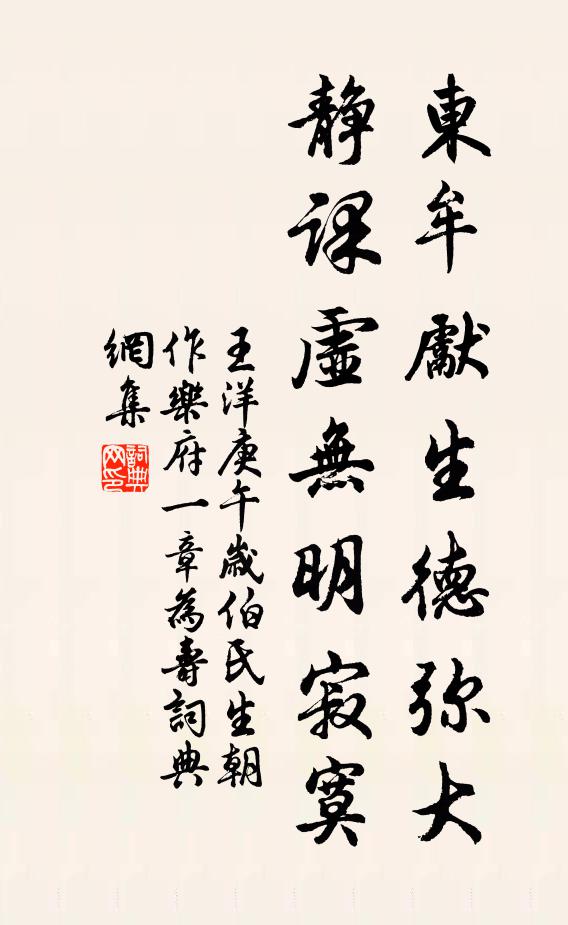 東牟獻生德弥大
靜課虛無明寂寞
王洋庚午歲伯氏生朝
作樂府一章為壽詞典
網集
詞典网印